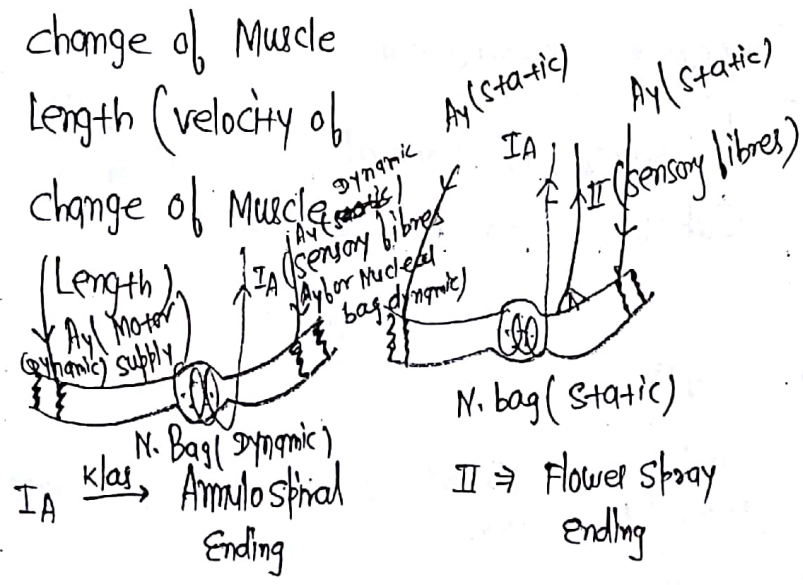 Change of Muscle
Length (velocity of
change of Muscle
Length)
Aγ( Motor
(Dynamic) supply)
IA (sensory fibres)
Dynamic
Aγ(
Aγ for Nuclear
bag dynamic)
N. Bag( Dynamic)
IA k/as → Annulospiral
Ending
Aγ(static)
IA
II (sensory fibres)
Aγ(static)
N. bag( static)
II ⇒ Flower spray
Ending